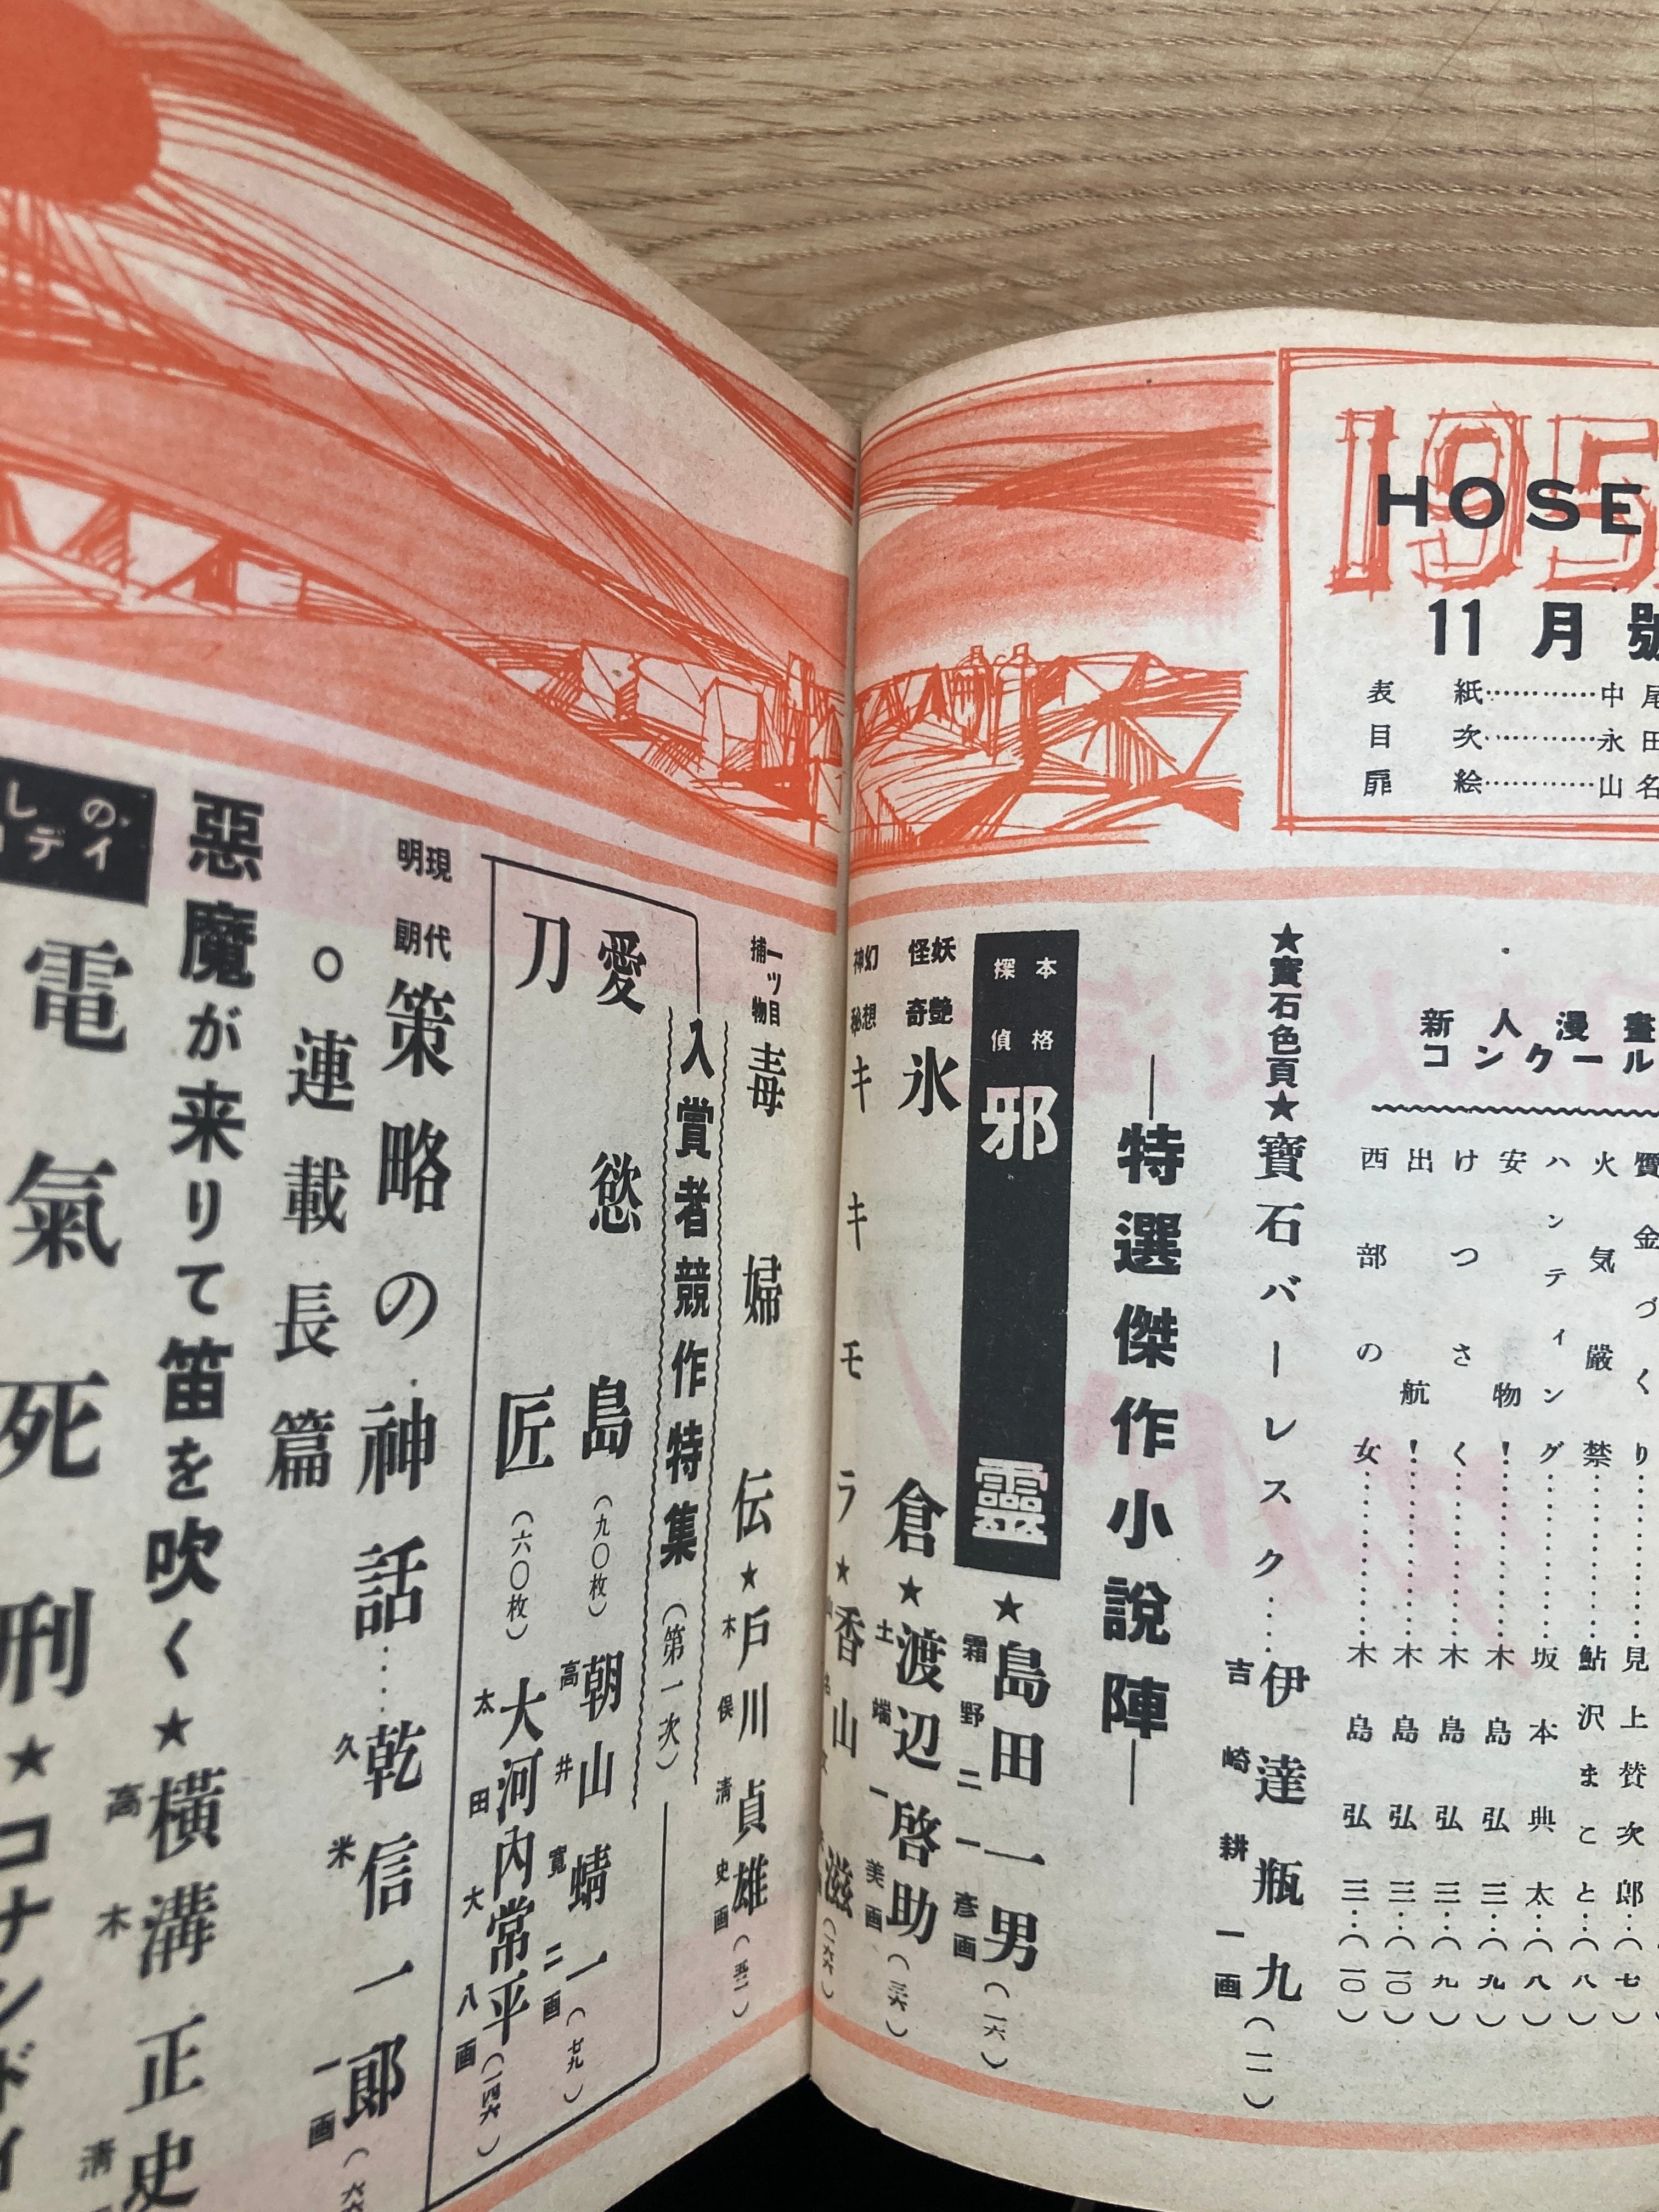 HOSE
11月號
表紙…………中尾
目次…………永田
扉絵…………山名
新人漫畫
コンクール
贋金づくり……見上賛次郎…(七)
火気厳禁……鮎沢まこと…(八)
ハンティング……坂本典太…(八)
安物!……木島弘三…(九)
けつさく……木島弘三…(九)
出航!……木島弘三…(一〇)
西部の女……木島弘三…(一〇)
★寶石色頁★寶石バーレスク……伊達瓶九(一一)
吉崎耕一画
―特選傑作小說陣―
本格
探偵
邪靈★島田一男(一六)
霜野二一彦画
妖艶
怪奇
氷倉★渡辺啓助(三六)
土端一美画
幻想
神秘
キキモラ★香山滋
一ツ目
捕物
毒婦伝★戸川貞雄(五二)
木俣清史画
入賞者競作特集(第一次)
愛慾島(九〇枚)朝山蜻一(七九)
高井寛二画
刀匠(六〇枚)大河内常平(一四六)
太田大八画
現代
明朗
策略の神話……乾信一郎
久米一画
。連載長篇
惡魔が来りて笛を吹く★橫溝正史
高木清
しの
デイ
電氣死刑★コナンドイ